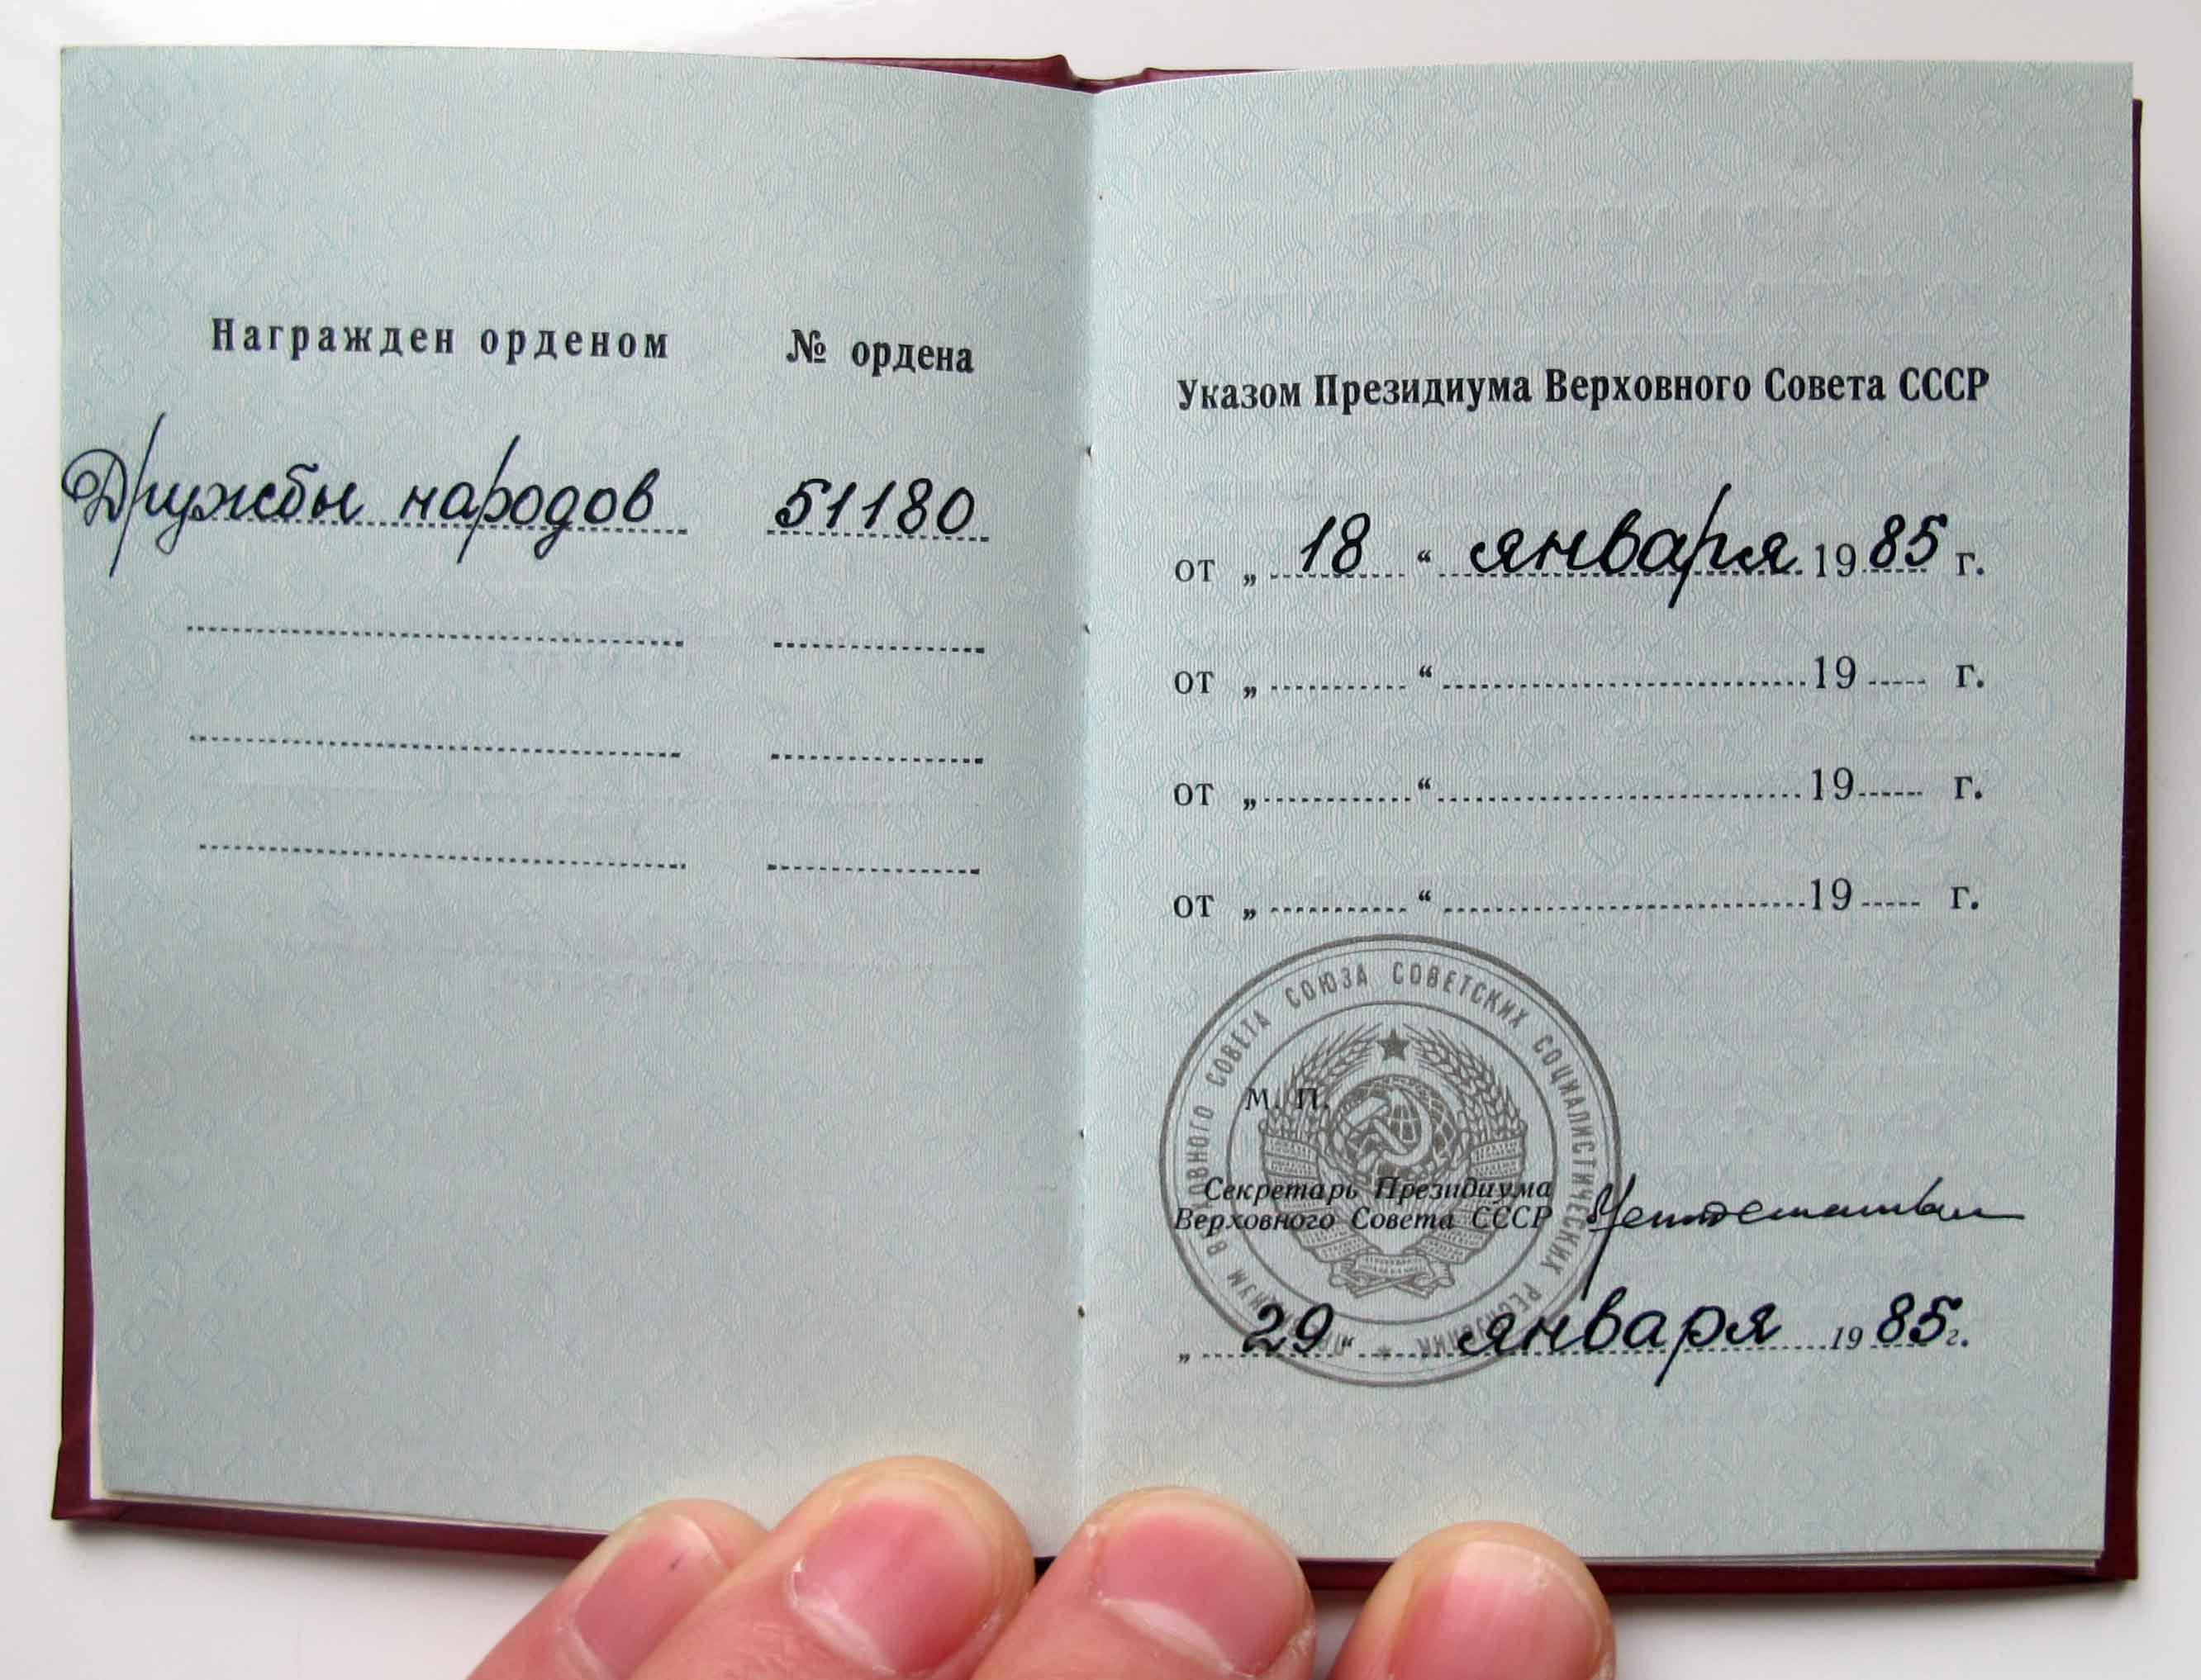 Награжден орденом № ордена
Дружбы народов 51180
Указом Президиума Верховного Совета СССР
от „ 18 “ января 1985 г.
от „ “ 19 г.
от „ “ 19 г.
от „ “ 19 г.
ПРЕЗИДИУМ ВЕРХОВНОГО СОВЕТА СОЮЗА СОВЕТСКИХ СОЦИАЛИСТИЧЕСКИХ РЕСПУБЛИК
М. П.
Секретарь Президиума
Верховного Совета СССР
„ 29 “ января 1985 г.